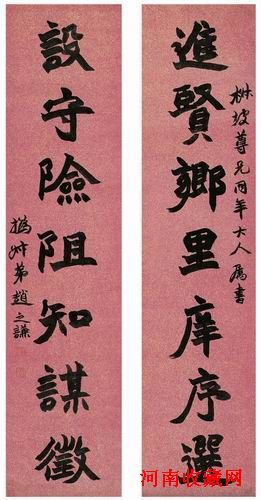 進賢鄉里庠序選
坡尊兄同年大人屬書
設守險阻知謀徵
撝叔弟趙之謙
河南收藏网